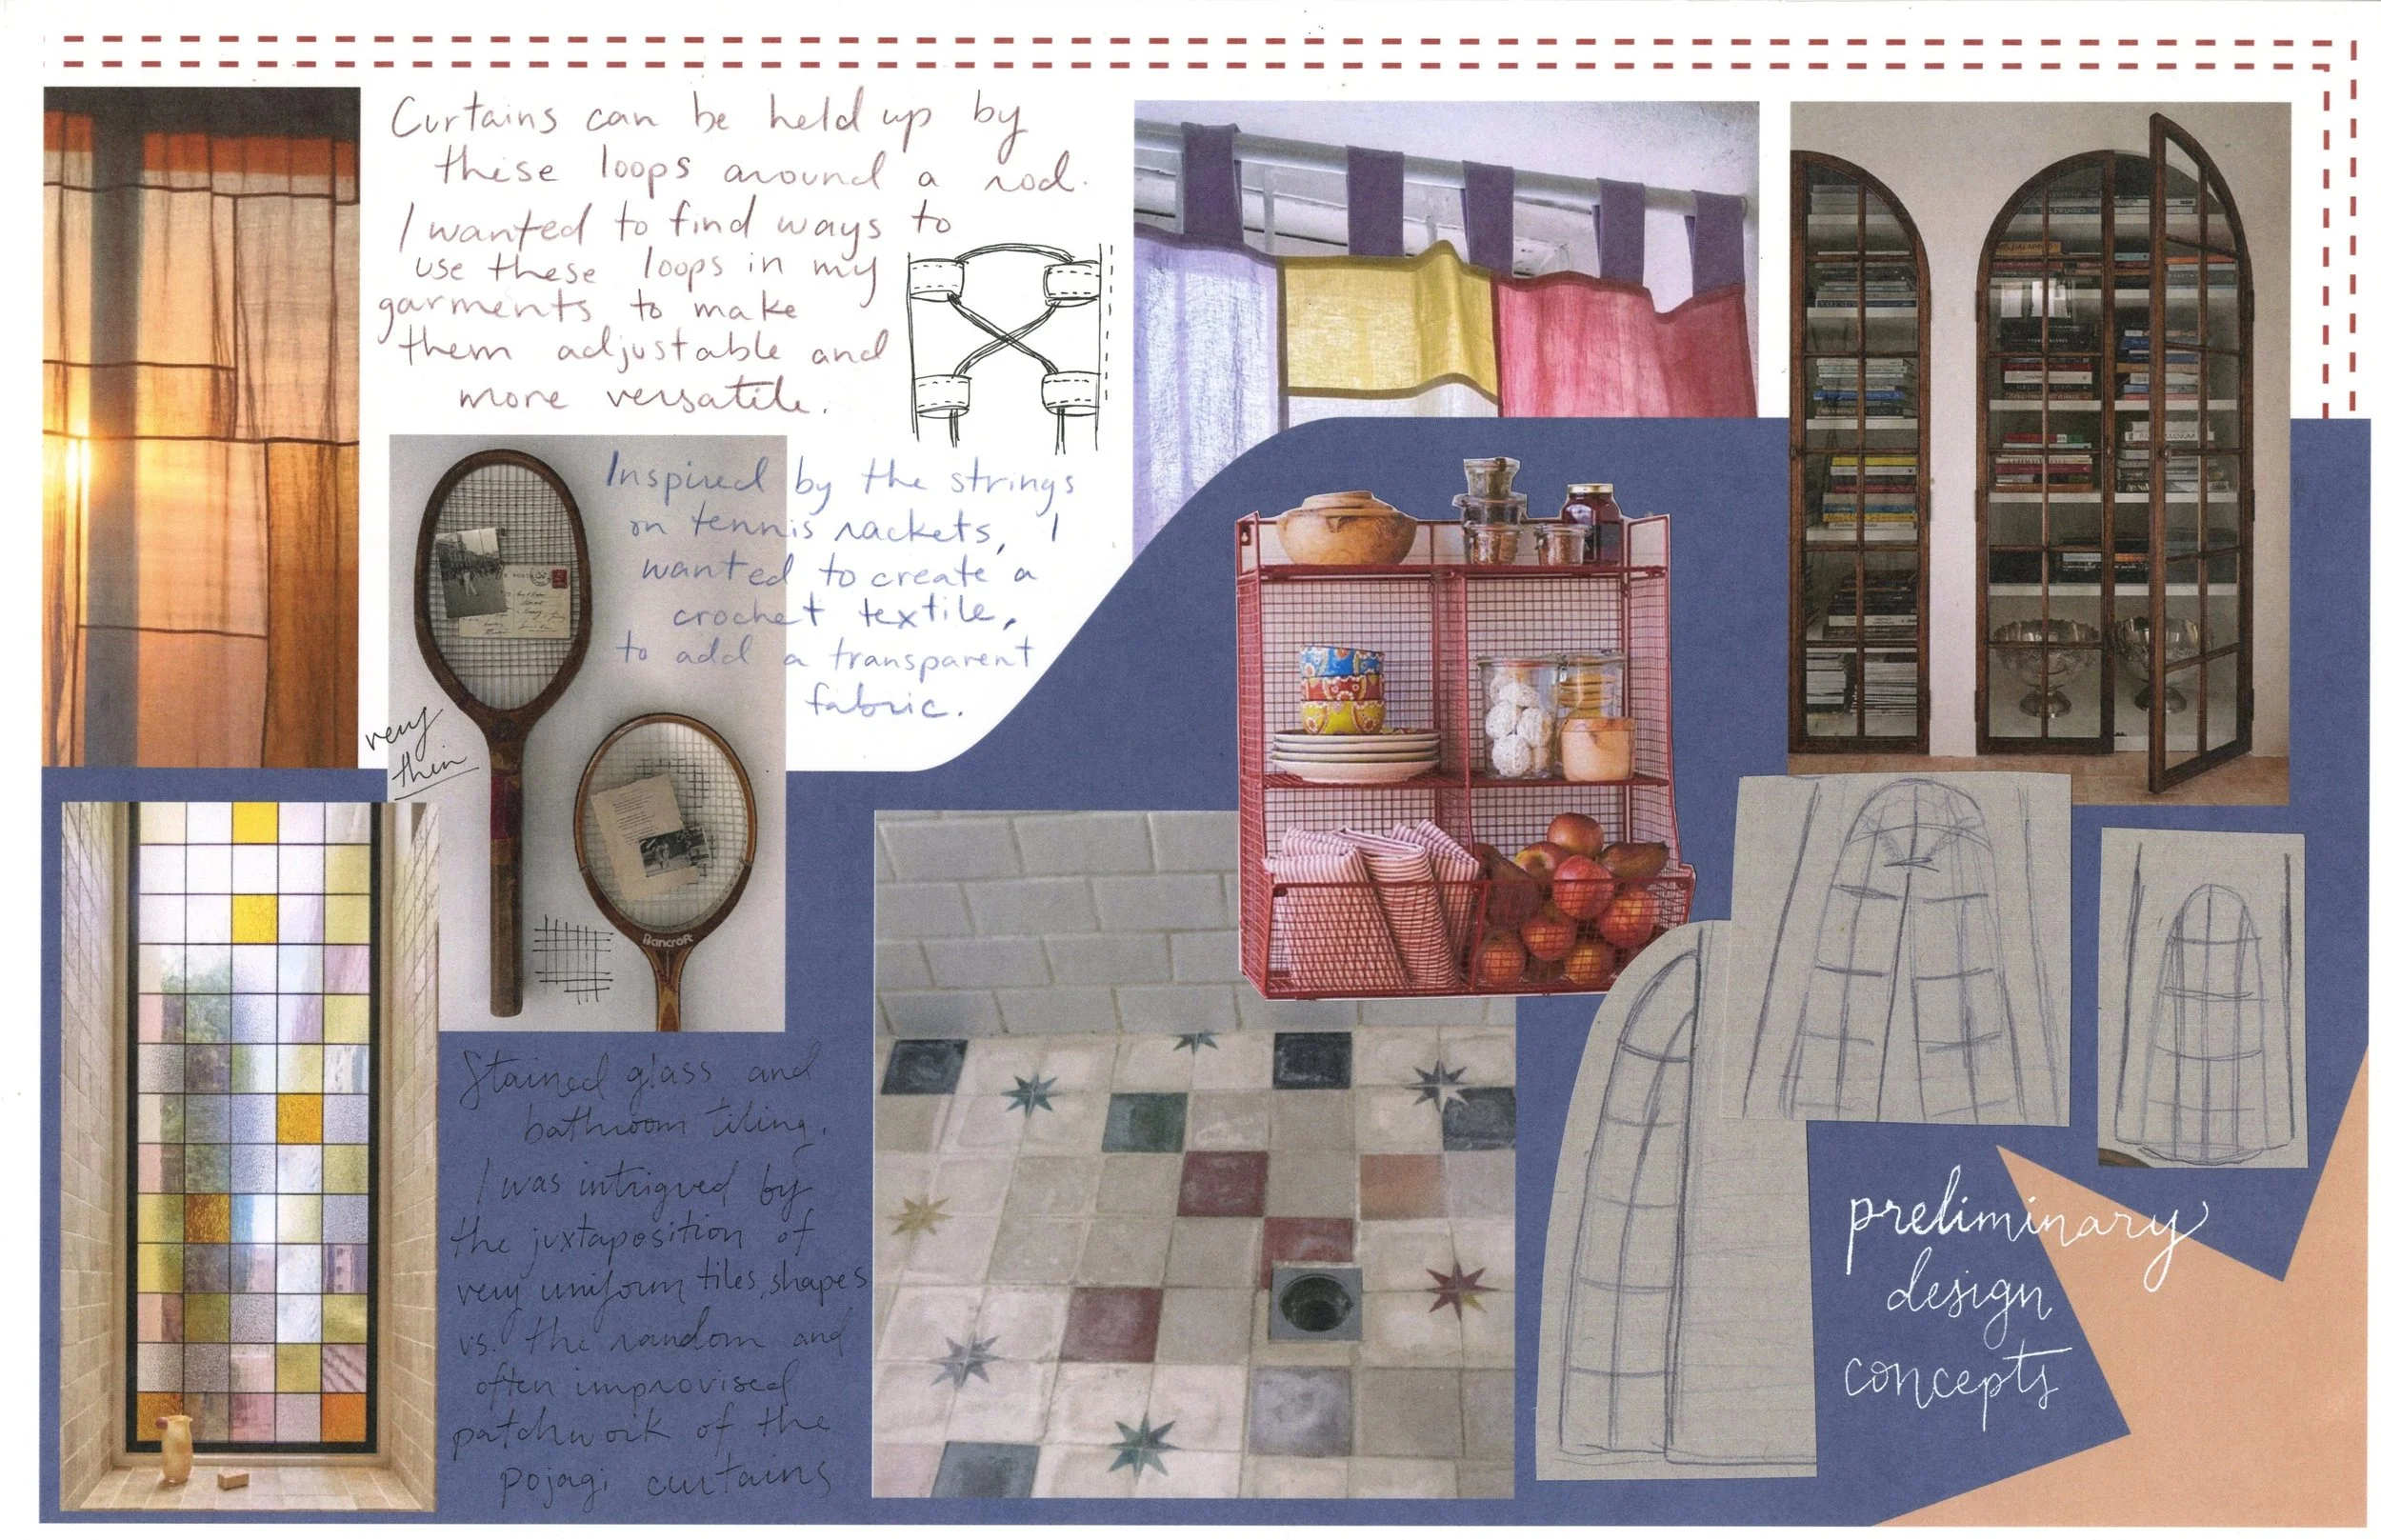 Curtains can be held up by
these loops around a rod.
I wanted to find ways to
use these loops in my
garments to make
them adjustable and
more versatile.
Inspired by the strings
on tennis rackets, I
wanted to create a
crochet textile,
to add a transparent
fabric.
very
thin
Bancroft
Stained glass and
bathroom tiling.
I was intrigued by
the juxtaposition of
very uniform tiles, shapes
vs. the random and
often improvised
patchwork of the
pojagi curtains
preliminary
design
concepts